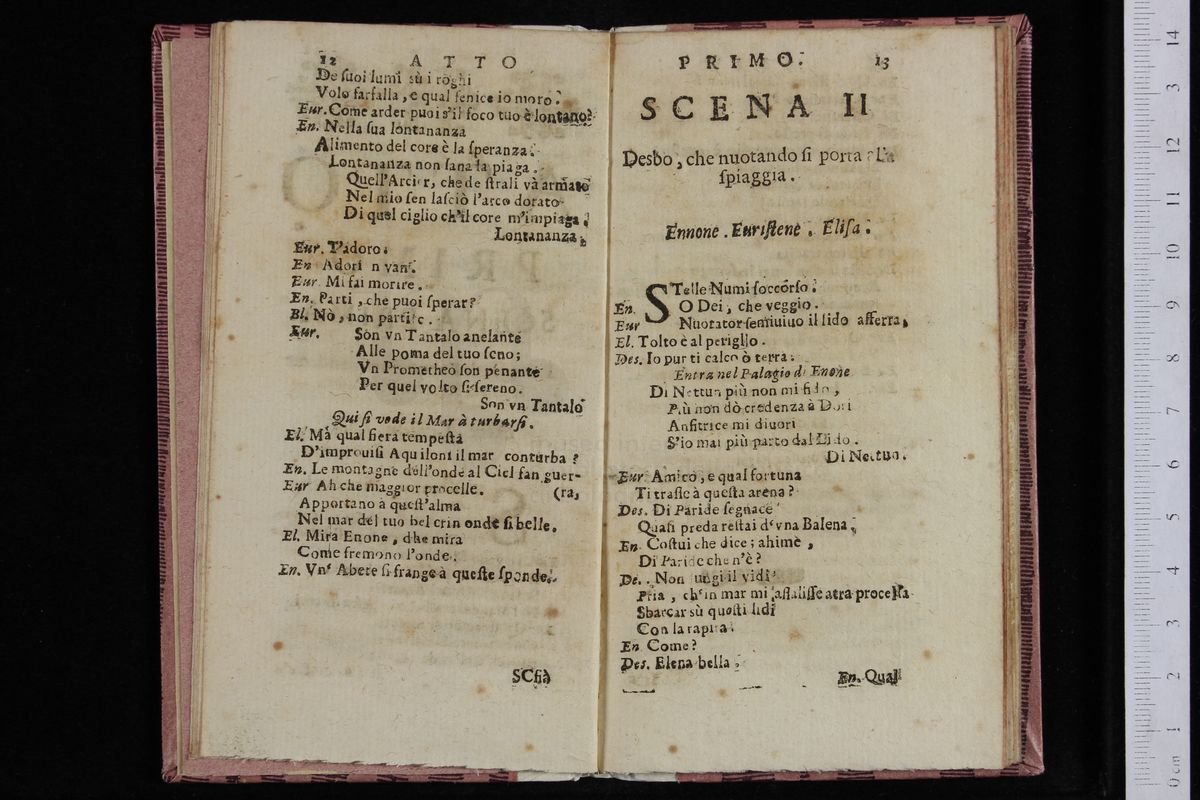 12 ATTO
De ſuoi lumi sù i roghi
Volo farfalla, e qual fenice io moro.
Eur. Come arder puoi s'il foco tuo è lontano?
En. Nella ſua lontananza
Alimento del core è la ſperanza.
Lontananza non ſana la piaga.
Quell'Arcier, che de ſtrali và armato
Nel mio ſen laſciò l'arco dorato
Di quel ciglio ch'il core m'impiaga.
Lontananza.
Eur. T'adoro.
En Adori n van.
Eur Mi fai morire.
En. Parti, che puoi ſperar?
El. Nò, non partire.
Eur. Son vn Tantalo anelante
Alle poma del tuo ſeno;
Vn Prometheo ſon penante
Per quel volto sì ſereno.
Son vn Tantalo
Qui ſi vede il Mar à turbarſi.
El. Mà qual fiera tempeſta
D'improuiſi Aquiloni il mar conturba?
En. Le montagne dell'onde al Ciel fan guer-
Eur Ah che maggior procelle. (ra,
Apportano à queſt'alma
Nel mar del tuo bel crin onde sì belle.
El. Mira Enone, dhe mira
Come fremono l'onde.
En. Vn' Abete ſi frange à queſte ſponde.
SCſià
PRIMO. 13
SCENA II
Desbo, che nuotando ſi porta alla
ſpiaggia.
Ennone. Euriſtene. Eliſa.
STelle Numi ſoccorſo.
En. O Dei, che veggio.
Eur Nuotator ſemiuiuo il lido afferra,
El. Tolto è al periglio.
Des. Io pur ti calco ò terra.
Entra nel Palagio di Enone
Di Nettun più non mi fido,
Più non dò credenza à Dori
Anfitrice mi diuori
S'io mai più parto dal Lido.
Di Nettun.
Eur Amico, e qual fortuna
Ti traſſe à queſta arena?
Des. Di Paride ſeguace
Quaſi preda reſtai d'vna Balena.
En. Coſtui che dice; ahime,
Di Paride che n'è?
De.. Non lungi il vidi
Pria, ch'in mar mi aſſaliſſe atra procella
Sbarcar sù queſti lidi
Con la rapita.
En. Come?
Des. Elena bella.
En. Qual